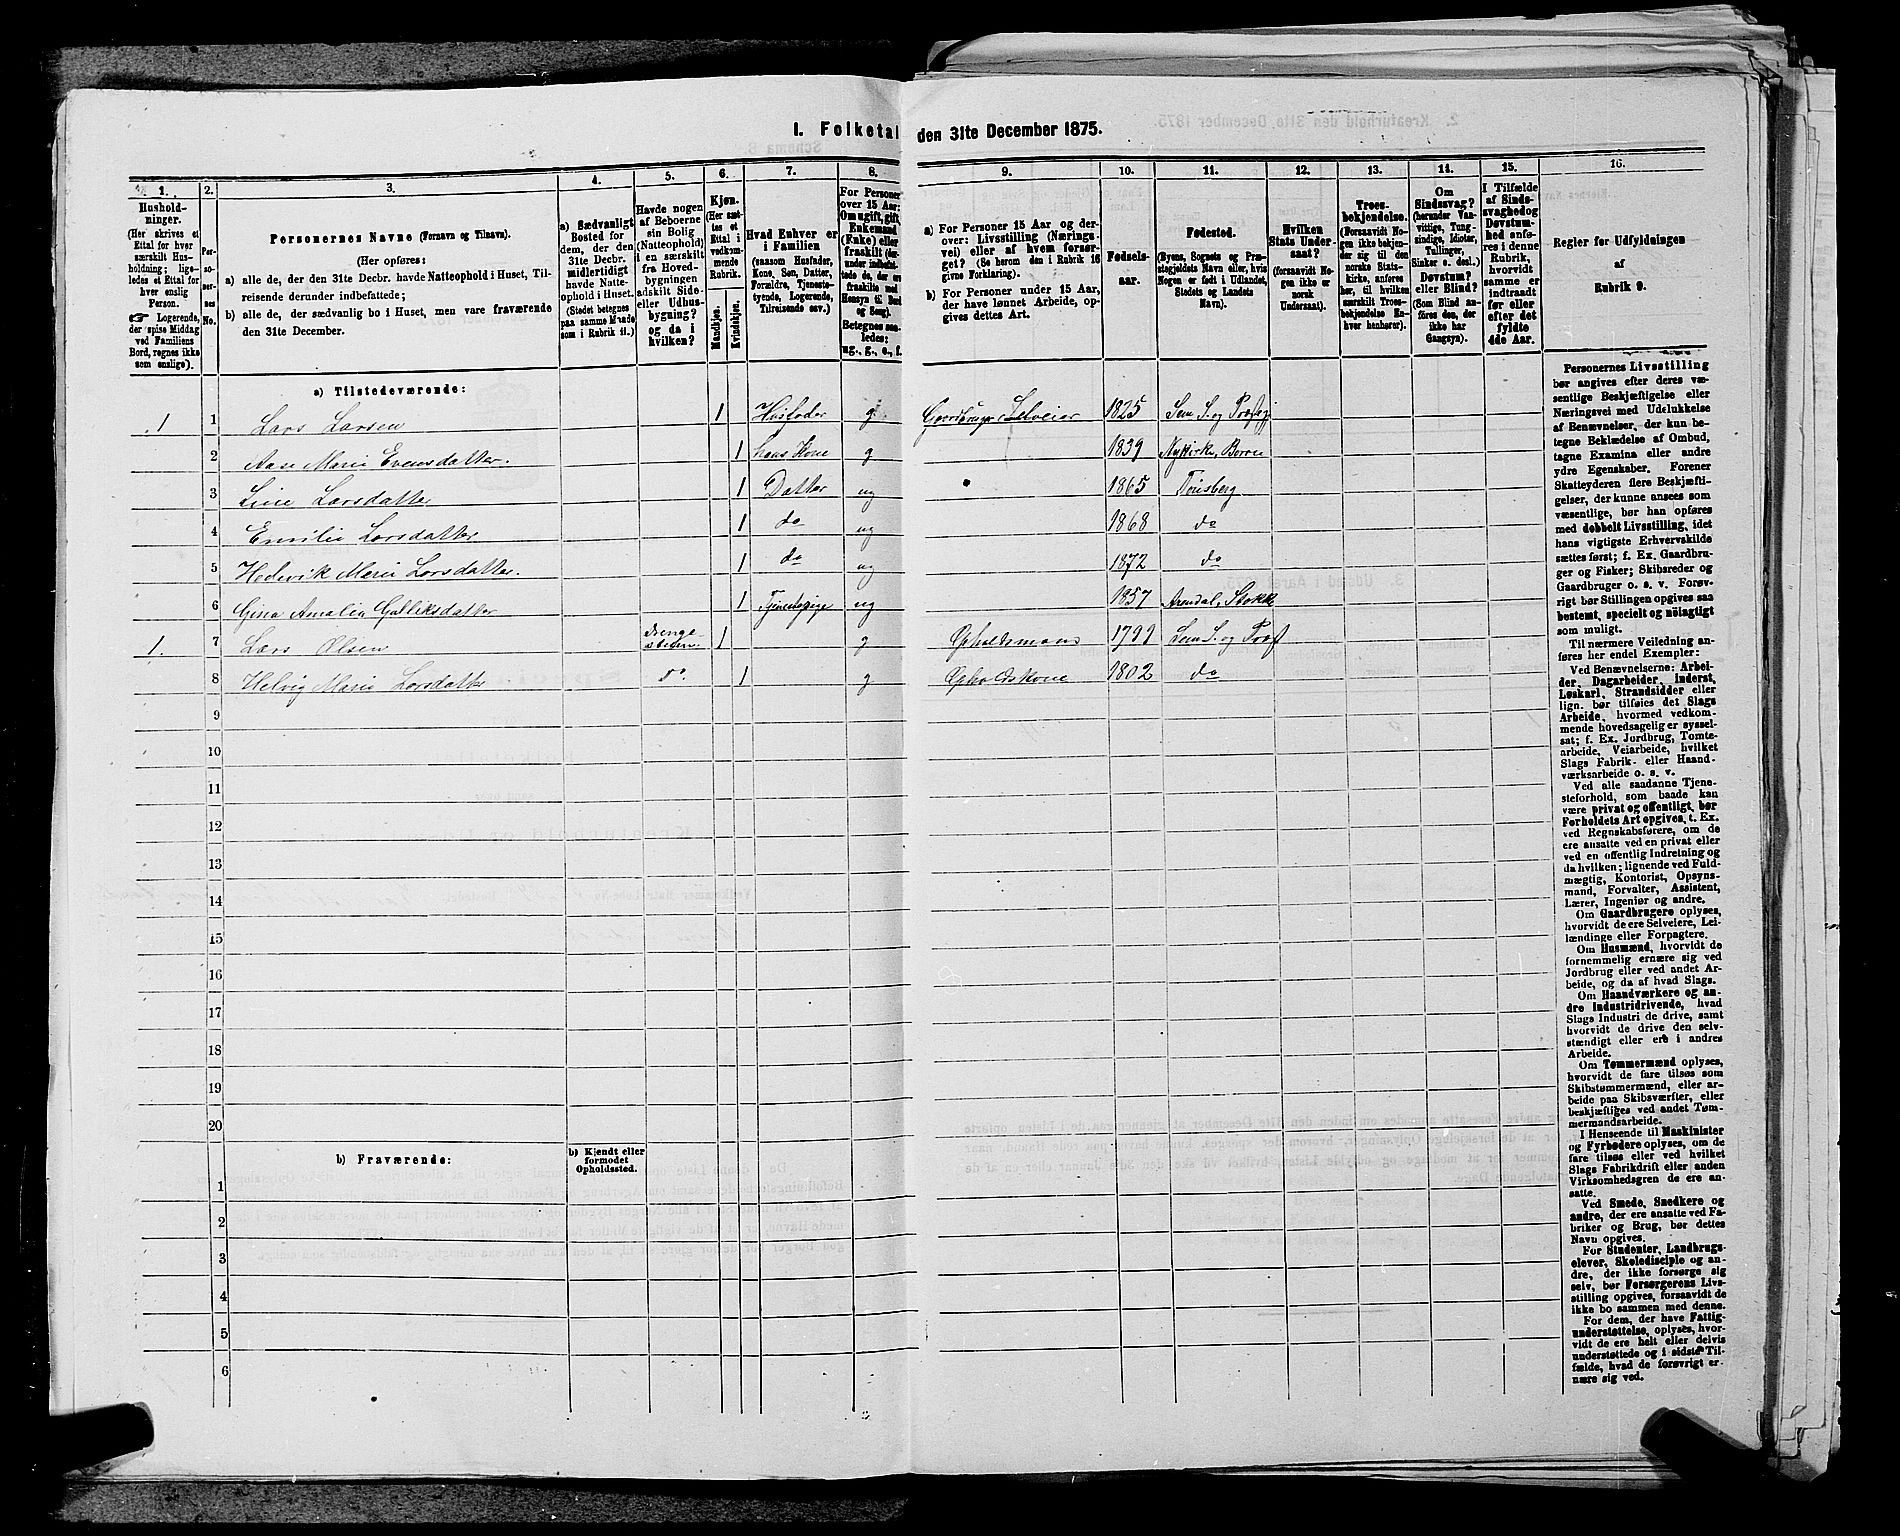 I. Folketal den 31te December 1875.
1. 2. 3. 4. 5. 6. 7. 8. 9. 10. 11. 12. 13. 14. 15. 16.
Husholdninger.
(Her skrives et
Ettal for hver
særskilt Husholdning; ligeledes et Ettal for
hver enslig
Person.
☞ Logerende,
der spise Middag
ved Familiens
Bord, regnes ikke
som enslige).
Personernes No.
Personernes Navne (Fornavn og Tilnavn).
(Her opføres:
a) alle de, der den 31te Decbr. havde Natteophold i Huset, Tilreisende derunder indbefattede;
b) alle de, der sædvanlig bo i Huset, men vare fraværende
den 31te December.
a) Sædvanligt
Bosted for
dem, der den
31te Decbr.
midlertidigt
havde Natteophold i Huset.
(Stedet betegnes
paa samme Maade
som i Rubrik 11.)
Havde nogen
af Beboerne
sin Bolig
(Natteophold)
i en særskilt
fra Hovedbygningen
adskilt Side-
eller Udhusbygning?
og da i
hvilken?
Kjøn.
(Her sættes et
Ettal i
vedkommende
Rubrik.
Mandkjøn.
Kvindekjøn.
Hvad Enhver er
i Familien
(saasom Husfader,
Kone, Søn, Datter,
Forældre, Tjenestetyende, Logerende,
Tilreisende osv.)
For Personer
over 15 Aar:
Om ugift, gift,
Enkemand
(Enke) eller
fraskilt (derunder indbefattede de, der ere
fraskilte med
Hensyn til Bord
og Seng).
Betegnes saaledes:
ug., g., e., f.
a) For Personer 15 Aar og derover: Livsstilling (Næringsvei) eller af hvem forsørget? (Se herom den i Rubrik 16
givne Forklaring).
b) For Personer under 15 Aar,
der have lønnet Arbeide, opgives dettes Art.
Fødselsaar.
Fødested.
(Byens, Sognets og Præstegjeldets Navn eller, hvis
Nogen er født i Udlandet,
Stedets og Landets
Navn).
Hvilken
Stats Undersaat?
(forsaavidt Nogen ikke er
norsk
Undersaat).
Troesbekjendelse.
(Forsaavidt Nogen ikke bekjender sig til den
norske Statskirke, anføres
her, til hvilken
særskilt Troesbekjendelse Enhver henhører).
Om
Sindssvag?
(herunder Vanvittige, Tungsindige, Idioter,
Tullinger,
Sinker o. desl.)
Døvstum?
eller Blind?
(Som Blind anføres den, der
ikke har
Gangsyn).
I Tilfælde
af Sindssvaghed og
Døvstumhed anføres i denne
Rubrik,
hvorvidt
samme er
indtraadt
før eller
efter det
fyldte
4de Aar.
Regler for Udfyldningen
af
Rubrik 9.
a) Tilstedeværende:
1 1 Lars Larsen 1 Husfader g Gaardbruger Selveier 1825 Sem S. og Præstegj
2 Aase Marie Evensdatter. 1 hans Kone g 1839 Nykirke, Borre
3 Line Larsdatter 1 Datter ug 1865 Tønsberg
4 Emilie Larsdatter 1 do ug 1868 do
5 Hedevik Marie Larsdatter. 1 do ug 1872 do
6 Gina Amalia Gulliksdatter 1 Tjenestepige ug 1857 Arendal, Stokk
1. 7 Lars Olsen Drengestuen 1 g Opholdsmand 1799 Sem S. og Præst
8 Helvig Marie Larsdatter do. 1 g Opholdskone 1802 do
9
10
11
12
13
14
15
16
17
18
19
20
b) Fraværende:
b) Kjendt eller
formodet
Opholdssted.
1
2
3
4
5
6
Personernes Livsstilling
bør angives efter deres væsentlige Beskjæftigelse eller
Næringsvei med Udelukkelse
af Benævnelser, der kun betegne Beklædelse af Ombud,
tagne Examina eller andre
ydre Egenskaber. Forener
Skatteyderen flere Beskjæftigelser, der kunne ansees som
væsentlige, bør han opføres
med dobbelt Livsstilling, idet
hans vigtigste Erhvervskilde
sættes først; f. Ex. Gaardbruger og Fisker; Skibsreder og
Gaardbruger o. s. v. Forøvrigt bør Stillingen opgives saa
bestemt, specielt og nøiagtigt
som muligt.
Til nærmere Veiledning anføres her endel Exempler:
Ved Benævnelserne: Arbeider, Dagarbeider, Inderst,
Løskarl, Strandsidder eller
lign. bør tilføies det Slags
Arbeide, hvormed vedkommende hovedsagelig er sysselsat; f. Ex. Jordbrug, Tomtearbeide, Veiarbeide, hvilket
Slags Fabrik- eller Haandværksarbeide o. s. v.
Ved alle saadanne Tjenesteforhold, som baade kan
være privat og offentligt, bør
Forholdets Art opgives, t. Ex.
ved Regnskabsførere, om de
ere ansatte ved en privat eller
ved en offentlig Indretning og
da hvilken; lignende ved Fuldmægtig, Kontorist, Opsynsmand, Forvalter, Assistent,
Lærer, Ingeniør og andre.
Om Gaardbrugere oplyses,
hvorvidt de ere Selveiere, Leilændinge eller Forpagtere.
Om Husmænd, hvorvidt de
fornemmelig ernære sig ved
Jordbrug eller ved andet Arbeide, og da af hvad Slags.
Om Haandværkere og andre Industridrivende, hvad
Slags Industri de drive, samt
hvorvidt de drive den selvstændigt eller ere i andres
Arbeide.
Om Tømmermænd oplyses,
hvorvidt de fare tilsøs som
Skibstømmermænd, eller arbeide paa Skibsværfter, eller
beskjæftiges ved andet Tømmermandsarbeide.
I Henseende til Maskinister
og Fyrbødere oplyses, om de
fare tilsøs eller ved hvilket
Slags Fabrikdrift eller anden
Virksomhedsgren de ere ansatte.
Ved Smede, Snedkere og
andre, der ere ansatte ved Fabriker og Brug, bør dettes
Navn opgives.
For Studenter, Landbrugselever, Skoledisciple og andre, der ikke forsørge sig
selv, bør Forsørgerens Livsstilling opgives, forsaavidt de
ikke bo sammen med denne.
For dem, der have Fattigunderstøttelse, oplyses, hvorvidt de ere helt eller delvis
understøttede og i sidste Tilfælde, hvad de forøvrigt ernære sig ved.